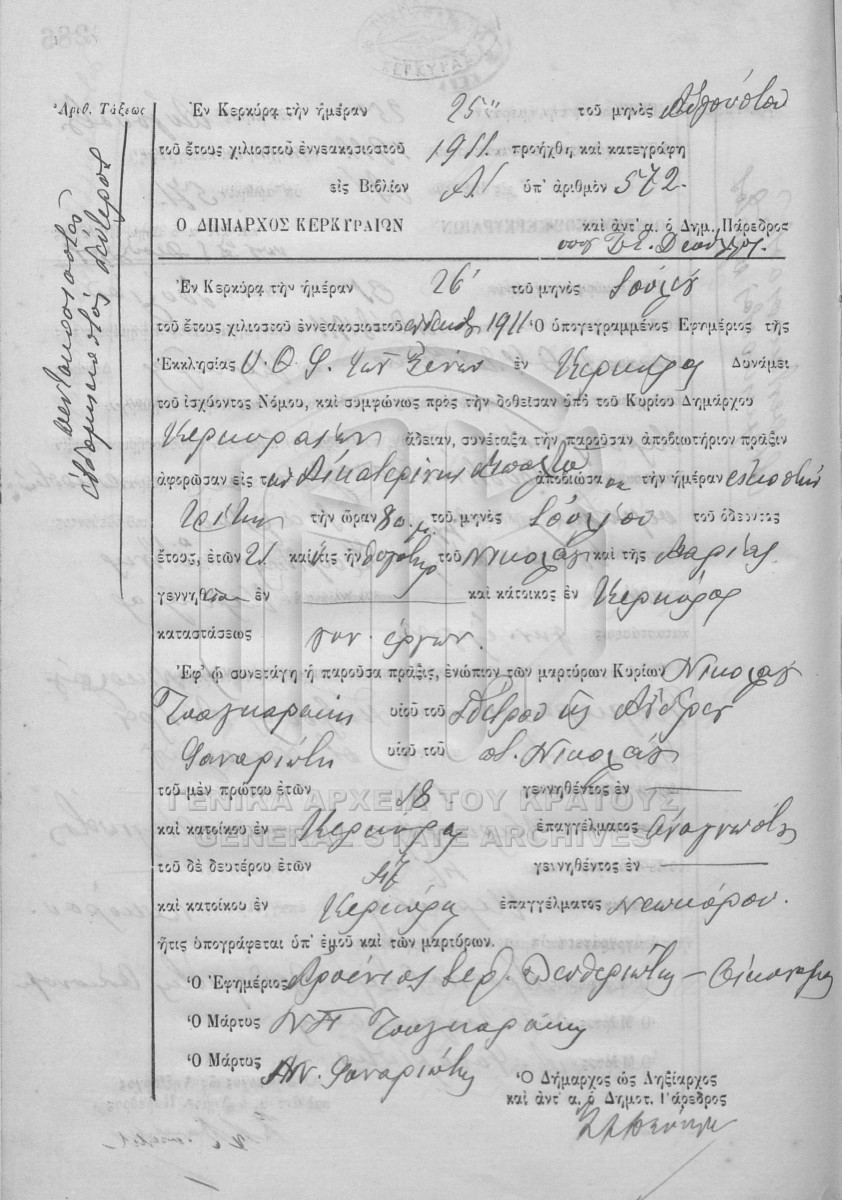 ΚΕΡΚΥΡΑΣ
Ἀριθ. Τάξεως
πεντακοσιοστὸς
ἑβδομηκοστὸς δεύτερος
Ἐν Κερκύρᾳ τὴν ἡμέραν 25 τοῦ μηνὸς Αὐγούστου
τοῦ ἔτους χιλιοστοῦ ἐννεακοσιοστοῦ 1911 προήχθη καὶ κατεγράφη
εἰς Βιβλίον Α΄ ὑπ' ἀριθμὸν 572.
Ο ΔΗΜΑΡΧΟΣ ΚΕΡΚΥΡΑΙΩΝ καὶ ἀντ' α. ὁ Δημ. Πάρεδρος
Ἐν Κερκύρᾳ τὴν ἡμέραν 26 τοῦ μηνὸς Ἰουλίου
τοῦ ἔτους χιλιοστοῦ ἐννεακοσιοστοῦ ἑνδεκάτου 1911 Ὁ ὑπογεγραμμένος Ἐφημέριος τῆς
Ἐκκλησίας Υ. Θ. Φ. τῶν Ξένων ἐν Κερκύρᾳ Δυνάμει
τοῦ ἰσχύοντος Νόμου, καὶ συμφώνως πρὸς τὴν δοθεῖσαν ὑπὸ τοῦ Κυρίου Δημάρχου
Κερκυραίων ἄδειαν, συνέταξα τὴν παροῦσαν ἀποβιωτήριον πρᾶξιν
ἀφορῶσαν εἰς τὴν Αἰκατερίνην ἀποβιώσασαν τὴν ἡμέραν εἰκοστὴν
τρίτην τὴν ὥραν 8 π.μ. τοῦ μηνὸς Ἰουλίου τοῦ ὁδεύοντος
ἔτους, ἐτῶν 21 καὶ τις ἦν θυγάτηρ τοῦ Νικολάου καὶ τῆς Μαρίας
γεννηθεῖσα ἐν καὶ κάτοικος ἐν Κερκύρᾳ
καταστάσεως γυν. ἔργων.
Ἐφ' ᾧ συνετάγη ἡ παροῦσα πρᾶξις, ἐνώπιον τῶν μαρτύρων Κυρίων Νικολάου
Τσαγκαράκη υἱοῦ τοῦ Πέτρου καὶ Ἀνδρέου
Φαναριώτη υἱοῦ τοῦ π. Νικολάου
τοῦ μὲν πρώτου ἐτῶν 18 γεννηθέντος ἐν
ΓΕΝΙΚΑ ΑΡΧΕΙΑ ΤΟΥ ΚΡΑΤΟΥΣ
καὶ κατοίκου ἐν Κερκύρᾳ ἐπαγγέλματος ἀναγνώστης
GENERAL STATE ARCHIVES
τοῦ δὲ δευτέρου ἐτῶν γεννηθέντος ἐν
καὶ κατοίκου ἐν Κερκύρᾳ ἐπαγγέλματος Νεωκόρου.
ἥτις ὑπογράφεται ὑπ' ἐμοῦ καὶ τῶν μαρτύρων.
Ὁ Ἐφημέριος Ἀρσένιος Ἱερ. Λευθεριώτης – Οἰκονόμος
Ὁ Μάρτυς Ν Π Τσαγκαράκης
Ὁ Μάρτυς Αν. Φαναριώτης
Ὁ Δήμαρχος ὡς Ληξίαρχος
καὶ ἀντ' α. ὁ Δημοτ. Πάρεδρος